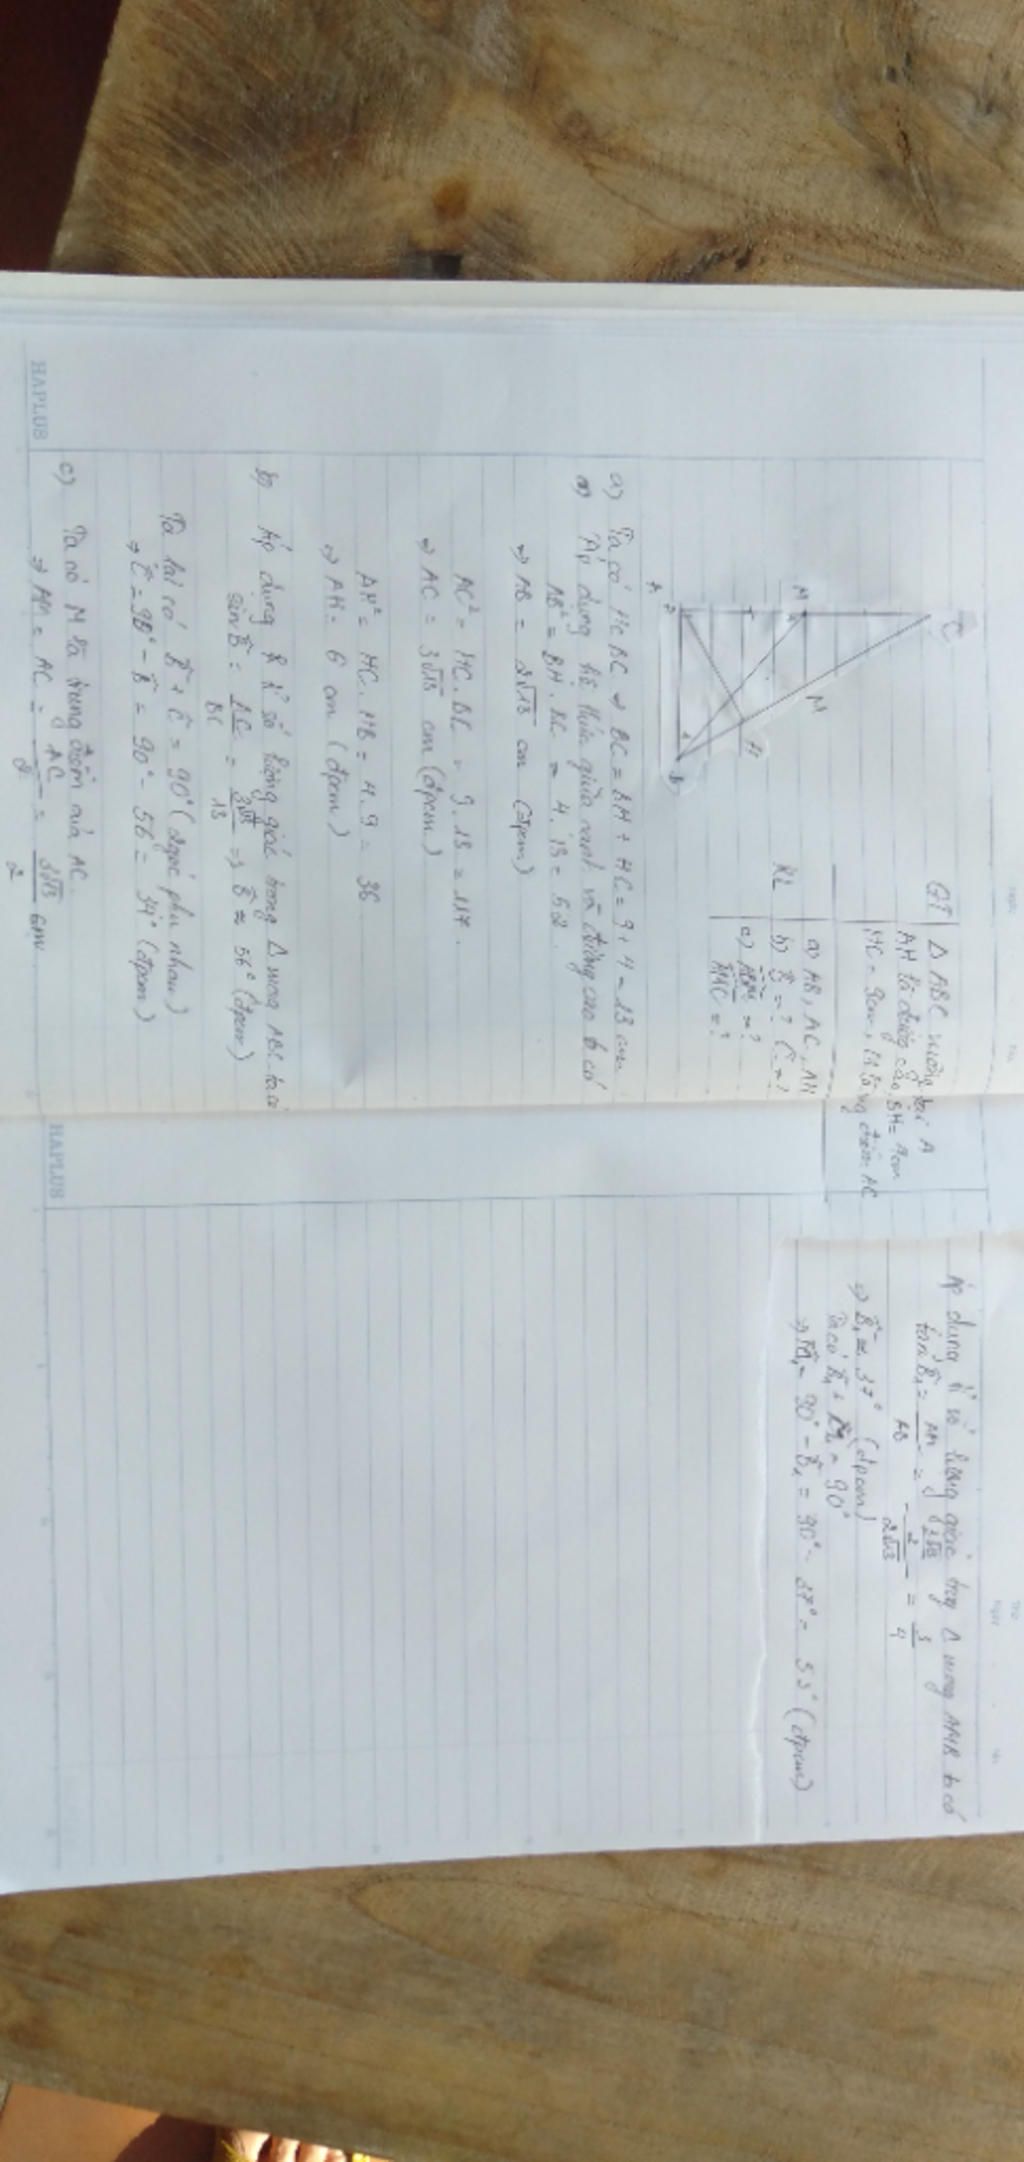 C
M
M
H
A
B
GT
Δ ABC vuông tại A
AH là đường cao, BH = 4cm
HC = 9cm, M là trung điểm AC
KL
a) AB, AC, AH
b) B̂ = ? Ĉ = ?
c) ABM = ?
MAC = ?
a) Ta có H ∈ BC ⇒ BC = BH + HC = 9 + 4 = 13 cm
Áp dụng hệ thức giữa cạnh và đường cao ta có
AB² = BH . BC = 4 . 13 = 52
⇒ AB = 2√13 cm (đpcm)
AC² = HC . BC = 9 . 13 = 117.
⇒ AC = 3√13 cm (đpcm)
AH² = HC . HB = 4 . 9 = 36
⇒ AH = 6 cm (đpcm)
b) Áp dụng tỉ số lượng giác trong Δ vuông ABC ta có
sin B̂ = AC/BC = 3√13/13 ⇒ B̂ ≈ 56° (đpcm)
Ta lại có B̂ + Ĉ = 90° (2 góc phụ nhau)
⇒ Ĉ = 90° - B̂ = 90° - 56° = 34° (đpcm)
c) Ta có M là trung điểm của AC.
⇒ AM = AC = AC/2 = 3√13/2 cm
HAPLUS
Áp dụng tỉ số lượng giác trong Δ vuông AMB ta có
tan B̂₁ = AM/AB = 3√13/2 / 2√13 = 3/4
⇒ B̂₁ ≈ 37° (đpcm)
Ta có B̂₁ + M̂₁ = 90°
⇒ M̂₁ = 90° - B̂₁ = 90° - 37° = 53° (đpcm)
HAPLUS